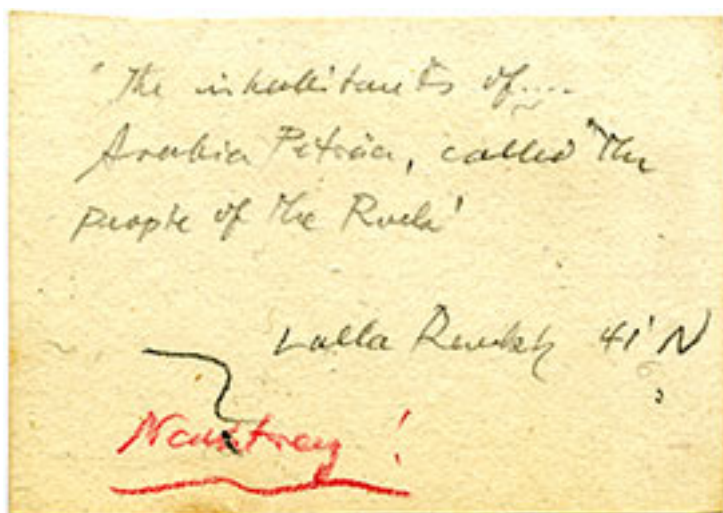 "The inhabitants of....
Arabia Petraea, called "the
people of the Rock'
Lalla Rookh 41' N